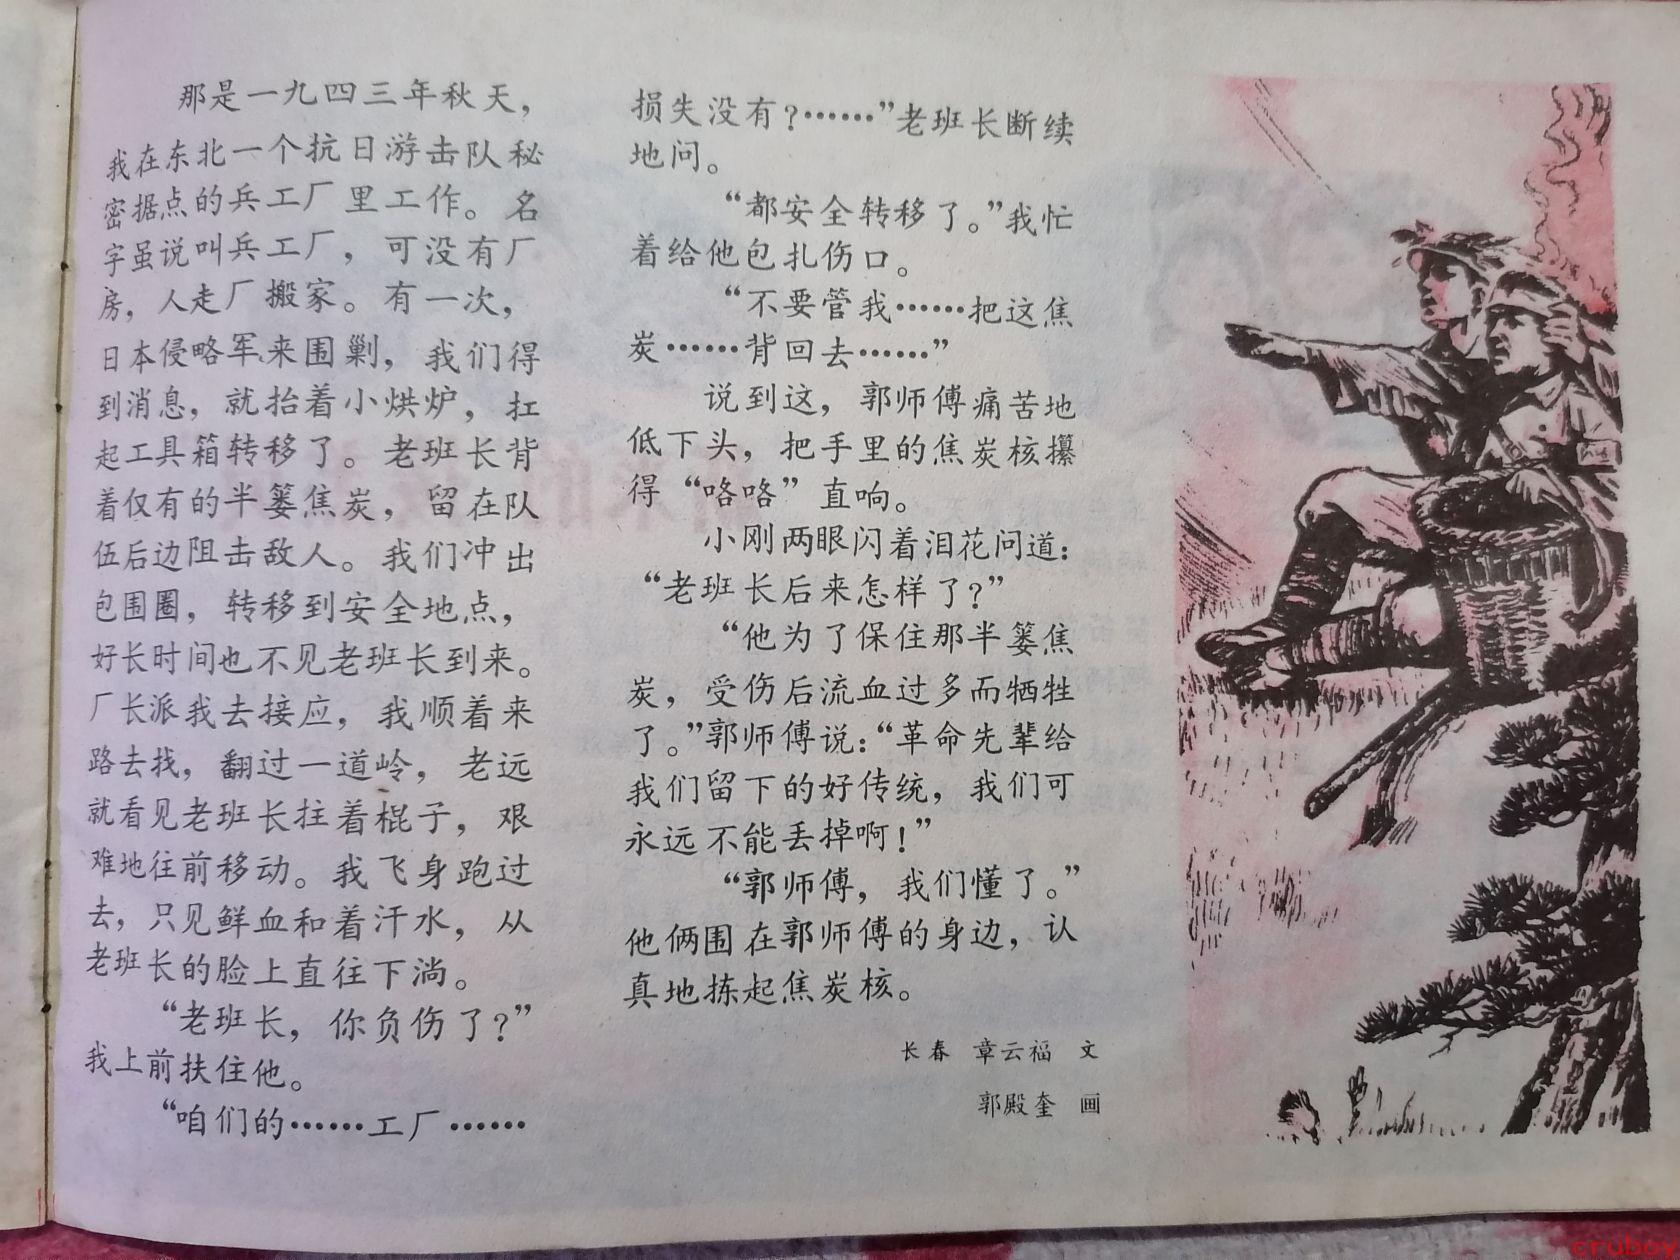 那是一九四三年秋天，
我在东北一个抗日游击队秘
密据点的兵工厂里工作。名
字虽说叫兵工厂，可没有厂
房，人走厂搬家。有一次，
日本侵略军来围剿，我们得
到消息，就抬着小烘炉，扛
起工具箱转移了。老班长背
着仅有的半篓焦炭，留在队
伍后边阻击敌人。我们冲出
包围圈，转移到安全地点，
好长时间也不见老班长到来。
厂长派我去接应，我顺着来
路去找，翻过一道岭，老远
就看见老班长拄着棍子，艰
难地往前移动。我飞身跑过
去，只见鲜血和着汗水，从
老班长的脸上直往下淌。
“老班长，你负伤了？”
我上前扶住他。
“咱们的……工厂……
损失没有？……”老班长断续
地问。
“都安全转移了。”我忙
着给他包扎伤口。
“不要管我……把这焦
炭……背回去……”
说到这，郭师傅痛苦地
低下头，把手里的焦炭核攥
得“咯咯”直响。
小刚两眼闪着泪花问道：
“老班长后来怎样了？”
“他为了保住那半篓焦
炭，受伤后流血过多而牺牲
了。”郭师傅说：“革命先辈给
我们留下的好传统，我们可
永远不能丢掉啊！”
“郭师傅，我们懂了。”
他俩围在郭师傅的身边，认
真地拣起焦炭核。
长春 章云福 文
郭殿奎 画